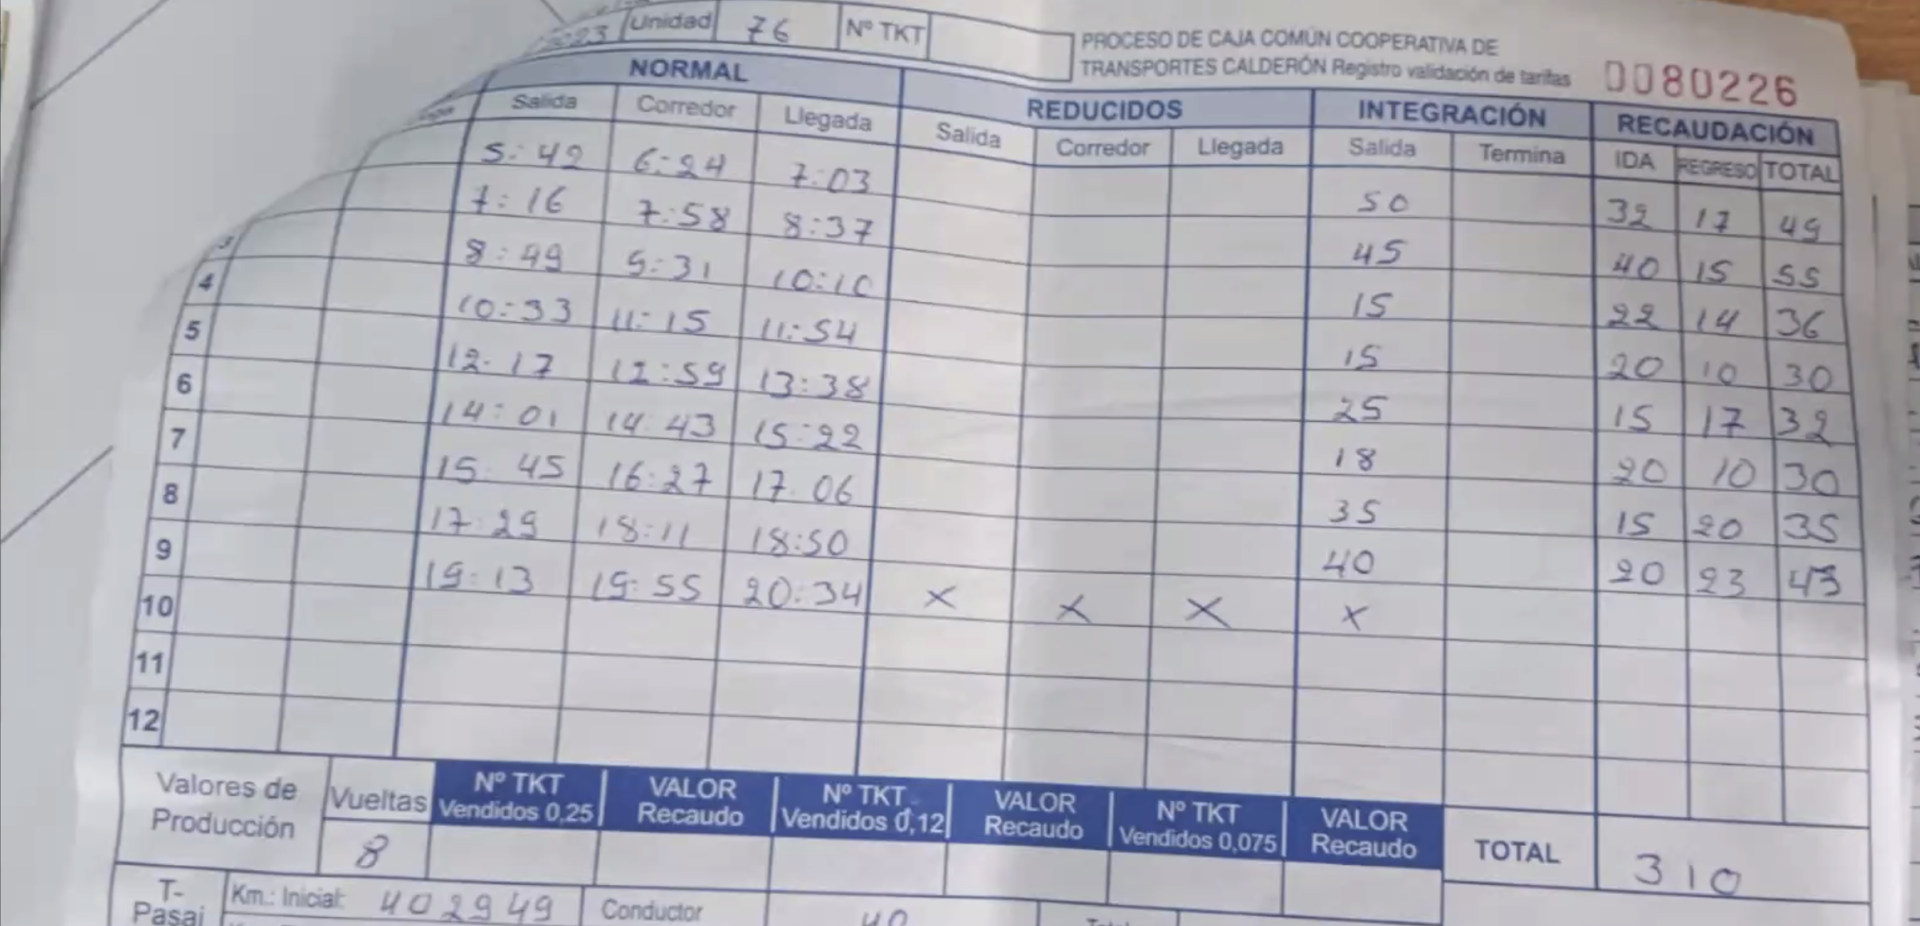 Unidad 76 Nº TKT
PROCESO DE CAJA COMÚN COOPERATIVA DE
TRANSPORTES CALDERÓN Registro validación de tarifas 0080226
NORMAL REDUCIDOS INTEGRACIÓN RECAUDACIÓN
Salida Corredor Llegada Salida Corredor Llegada Salida Termina IDA REGRESO TOTAL
5:42 6:24 7:03 50 32 17 49
7:16 7:58 8:37 45 40 15 55
3 8:49 9:31 10:10 15 22 14 36
4 10:33 11:15 11:54 15 20 10 30
5 12:17 12:59 13:38 25 15 17 32
6 14:01 14:43 15:22 18 20 10 30
7 15:45 16:27 17:06 35 15 20 35
8 17:29 18:11 18:50 40 20 23 43
9 19:13 19:55 20:34 X X X X
10
11
12
Valores de Producción Vueltas Nº TKT Vendidos 0,25 VALOR Recaudo Nº TKT Vendidos 0,12 VALOR Recaudo Nº TKT Vendidos 0,075 VALOR Recaudo TOTAL 310
8
T- Km.: Inicial: 402949 Conductor
Pasaj